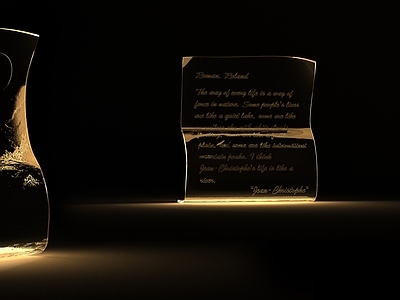 Roman. Roland
"The way of every life is a way of
force in nature. Some people's lives
are like a quiet lake, some are like
plain, and some are like intermittent
mountain peaks. I think
Jean-Christophe's life is like a
river.
"Jean-Christophe"